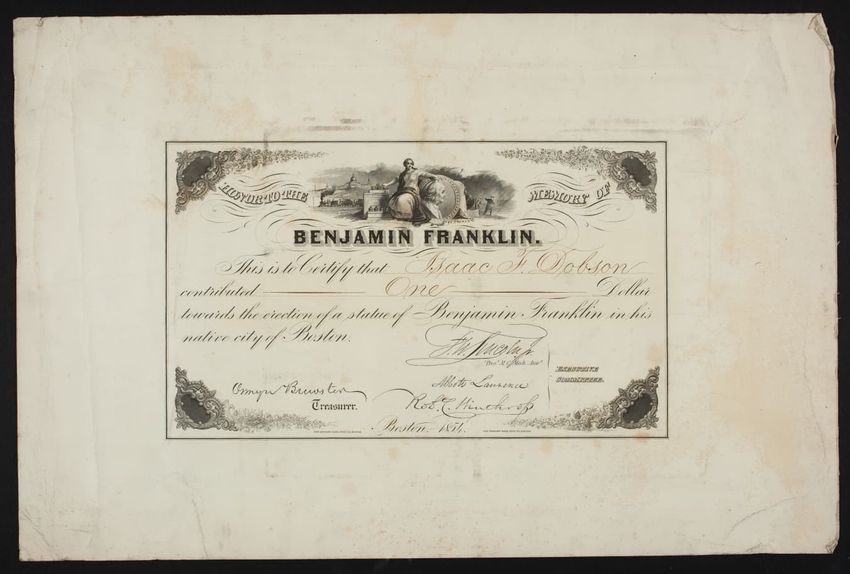 HONOR TO THE MEMORY OF
BENJAMIN FRANKLIN.
This is to Certify that Isaac F. Dobson
contributed One Dollar
towards the erection of a statue of Benjamin Franklin in his
native city of Boston.
F. W. Lincoln Jr.
EXECUTIVE
COMMITTEE.
Osmyn Brewster
Treasurer.
Abbott Lawrence
Robt. C. Winthrop
Boston, 1854.